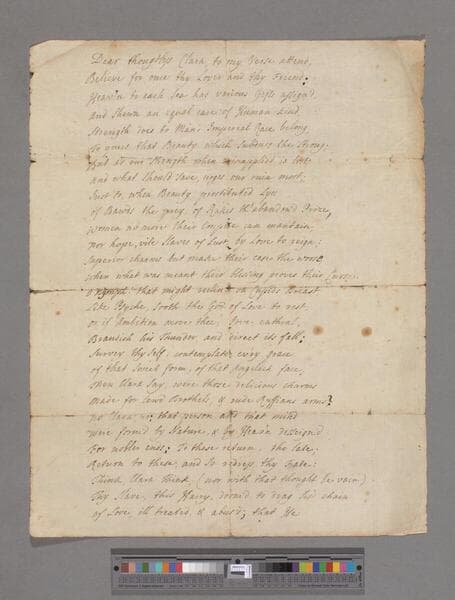 Dear thoughtless Clara, to my Verse attend,
Believe for once thy Lover and thy Friend;
Heav'n to each Sex has various Gifts assign'd,
and Shewn an equal care of Human kind
Strength does to Man's Imperial Race belong,
To yours that Beauty which Subdues the Strong;
And as our Strength when misapplied is lost
and what should save, urges our ruin most;
Just so, when Beauty prostituted Lyes
of Bawds the prey, of Rakes th'abandon'd Prize,
Women no more their Empire can maintain,
nor hope, vile Slaves of Lust, by Love to reign;
Superior charms but make their case the worse
when what was meant their blessing proves their Curse.
that might reclin'd on Cupids breast
Like Psyche, sooth the God of Love to rest,
or if Ambition move thee, Jove enthral,
Brandish his thunder, and direct its fall;
Survey thy Self, contemplate ev'ry grace
of that Sweet form, of that Angelick face,
then Clara Say, were those delicious charms
made for lewd Brothels, & rude Ruffians arms?
no Clara no; that person and that mind
were form'd by Nature, & by Heav'n design'd
For nobler ends; To these return, tho late;
Return to these, and So redress thy Fate:
Think Clara think, (nor with that thought be vain)
Thy Slave, this Harry, doom'd to drag his chain
of Love, ill treated, & abus'd, that He